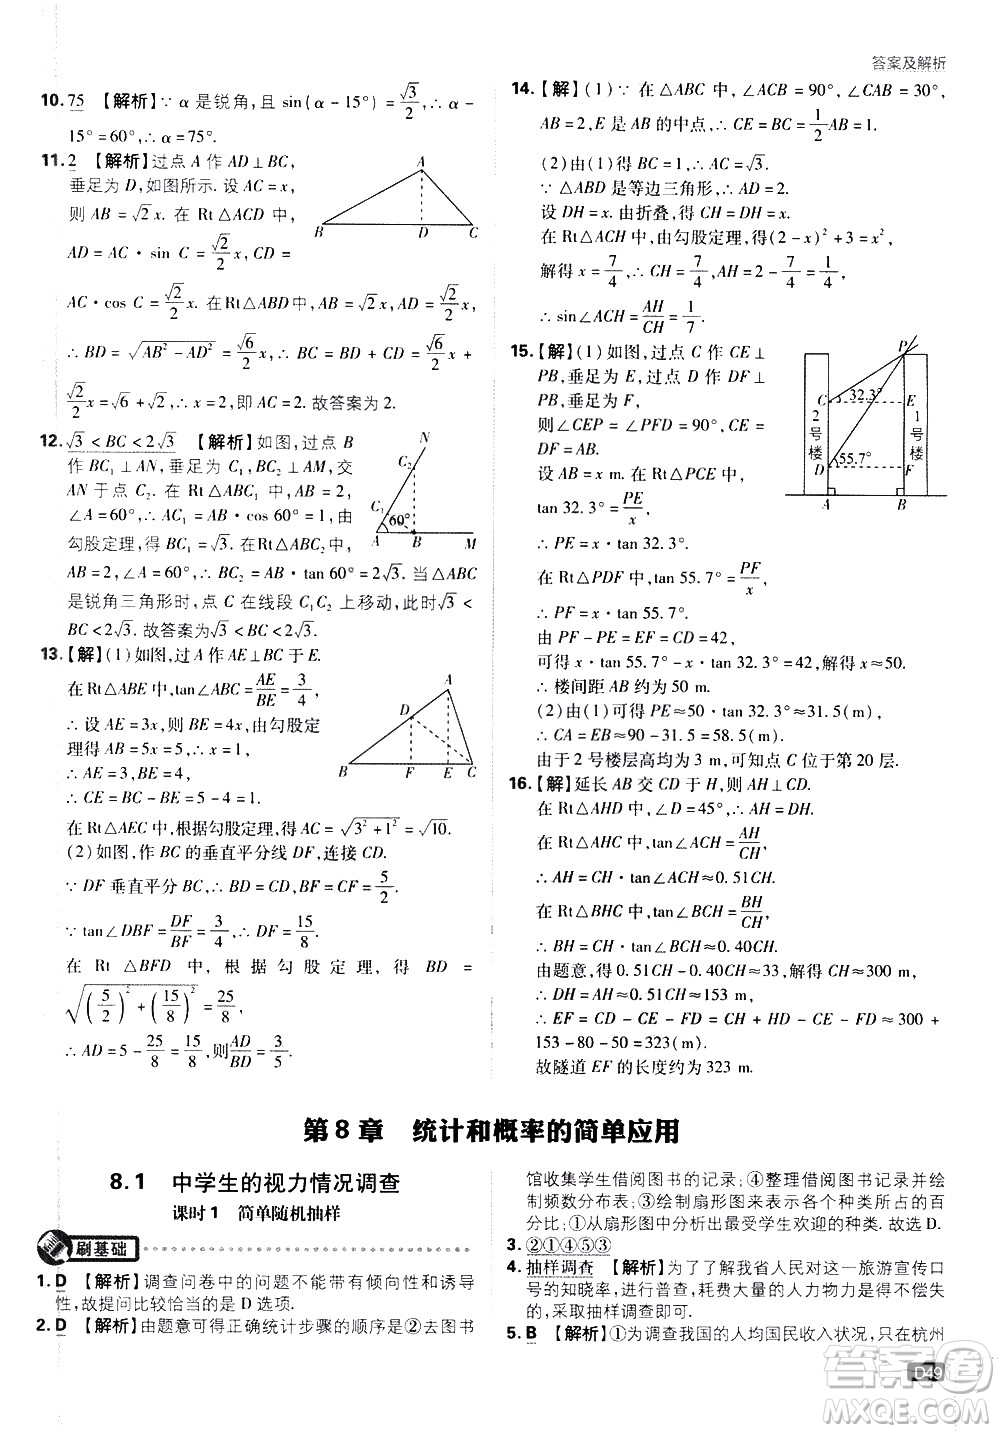 答案及解析
10. 75 【解析】∵ α 是锐角,且 sin(α－15°)＝√3/2,∴ α－
15°＝60°,∴ α＝75°.
11. 2 【解析】过点 A 作 AD⊥BC,
垂足为 D,如图所示. 设 AC＝x,
则 AB＝√2x. 在 Rt△ACD 中,
AD＝AC·sin C＝√2/2x,CD＝
AC·cos C＝√2/2x. 在 Rt△ABD 中,AB＝√2x,AD＝√2/2x,
∴ BD＝√(AB²－AD²)＝√6/2x,∴ BC＝BD＋CD＝√6/2x＋
√2/2x＝√6＋√2,即 AC＝2. 故答案为 2.
A
B D C
12. √3＜BC＜2√3 【解析】如图,过点 B
作 BC₁⊥AN,垂足为 C₁,BC₂⊥AM,交
AN 于点 C₂. 在 Rt△ABC₁ 中,AB＝2,
∠A＝60°,∴ AC₁＝AB·cos 60°＝1,由
勾股定理,得 BC₁＝√3. 在Rt△ABC₂中,
AB＝2,∠A＝60°,∴ BC₂＝AB·tan 60°＝2√3. 当△ABC
是锐角三角形时,点 C 在线段 C₁C₂ 上移动,此时√3＜
BC＜2√3. 故答案为√3＜BC＜2√3.
N
C₂
C₁
60°
A B M
13. 【解】(1)如图,过 A 作 AE⊥BC 于 E.
在 Rt△ABE 中,tan∠ABC＝AE/BE＝3/4,
∴ 设 AE＝3x,则 BE＝4x,由勾股定
理得 AB＝5x＝5,∴ x＝1,
∴ AE＝3,BE＝4,
∴ CE＝BC－BE＝5－4＝1.
在 Rt△AEC 中,根据勾股定理,得 AC＝√(3²＋1²)＝√10.
(2)如图,作 BC 的垂直平分线 DF,连接 CD.
∵ DF 垂直平分 BC,∴ BD＝CD,BF＝CF＝5/2.
∵ tan∠DBF＝DF/BF＝3/4,∴ DF＝15/8.
在 Rt △BFD 中,根据勾股定理,得 BD＝
√((5/2)²＋(15/8)²)＝25/8,
∴ AD＝5－25/8＝15/8,则AD/BD＝3/5.
A
D
B F E C
14. 【解】(1)∵ 在△ABC 中,∠ACB＝90°,∠CAB＝30°,
AB＝2,E 是 AB 的中点,∴ CE＝BE＝1/2AB＝1.
(2)由(1)得 BC＝1,∴ AC＝√3.
∵ △ABD 是等边三角形,∴ AD＝2.
设 DH＝x. 由折叠,得 CH＝DH＝x.
在 Rt△ACH 中,由勾股定理,得(2－x)²＋3＝x²,
解得 x＝7/4,∴ CH＝7/4,AH＝2－7/4＝1/4,
∴ sin∠ACH＝AH/CH＝1/7.
15. 【解】(1)如图,过点 C 作 CE⊥
PB,垂足为 E,过点 D 作 DF⊥
PB,垂足为 F,
则∠CEP＝∠PFD＝90°,CE＝
DF＝AB.
设 AB＝x m. 在 Rt△PCE 中,
tan 32.3°＝PE/x,
∴ PE＝x·tan 32.3°.
在 Rt△PDF 中,tan 55.7°＝PF/x,
∴ PF＝x·tan 55.7°.
由 PF－PE＝EF＝CD＝42,
可得 x·tan 55.7°－x·tan 32.3°＝42,解得 x≈50.
∴ 楼间距 AB 约为 50 m.
(2)由(1)可得 PE≈50·tan 32.3°≈31.5(m),
∴ CA＝EB≈90－31.5＝58.5(m).
由于 2 号楼每层高均为 3 m,可知点 C 位于第 20 层.
P
C 32.3° E
2号楼
1号楼
D 55.7° F
A B
16. 【解】延长 AB 交 CD 于 H,则 AH⊥CD.
在 Rt△AHD 中,∠D＝45°,∴ AH＝DH.
在 Rt△AHC 中,tan∠ACH＝AH/CH,
∴ AH＝CH·tan∠ACH≈0.51CH.
在 Rt△BHC 中,tan∠BCH＝BH/CH,
∴ BH＝CH·tan∠BCH≈0.40CH.
由题意,得 0.51CH－0.40CH≈33,解得 CH≈300,
∴ DH＝AH≈0.51CH≈153 m,
∴ EF＝CD－CE－FD＝CH＋HD－CE－FD≈300＋
153－80－50＝323(m).
故隧道 EF 的长度约为 323 m.
第 8 章 统计和概率的简单应用
8.1 中学生的视力情况调查
课时 1 简单随机抽样
刷基础
1. D 【解析】调查问卷中的问题不能带有倾向性和诱导
性,故提问比较恰当的是 D 选项.
2. D 【解析】由题意可得正确统计步骤的顺序是②去图书
馆收集学生借阅图书的记录;④整理借阅图书记录并绘
制频数分布表;③绘制扇形图来表示各个种类所占的百
分比;①从扇形图中分析出最受学生欢迎的种类. 故选 D.
3. ②①④⑤③
4. 抽样调查 【解析】为了了解我省人民对这一旅游宣传口
号的知晓率,进行普查,耗费大量的人力物力是得不偿失
的,采取抽样调查即可.
5. B 【解析】①为调查我国的人均国民收入状况,只在杭州
D49
答案圈
MXQE.COM